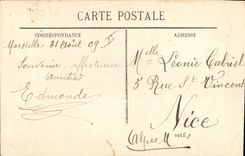 CARTE POSTALE
CORRESPONDANCE
ADRESSE
Marseille 31 Août 09
Souvenir affectueux
Amitiés
Edmonde
Melle Léonie Gabriel
5 Rue St Vincent
Nice
Alpes Mmes